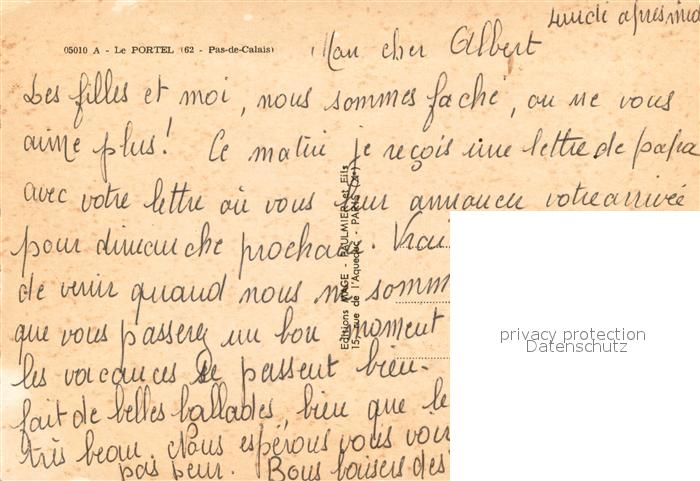 Lundi après midi
05010 A - Le PORTEL (62 - Pas-de-Calais)
Mon cher Albert
Les filles et moi, nous sommes faché, on ne vous
aime plus! Ce matin je reçois une lettre de papa
avec votre lettre où vous leur annoncer votre arrivée
pour dimanche prochain. Vrai
de venir quand nous ne somm
que vous passerez un bon moment
les vacances se passent bien.
fait de belles ballades, bien que le
très beau. Nous espérons vous voir
pas peur. Bons baisers des
Editions MAGE - PAULMIER et Fils
15, rue de l'Aqueduc - PARIS (X°)
privacy protection
Datenschutz